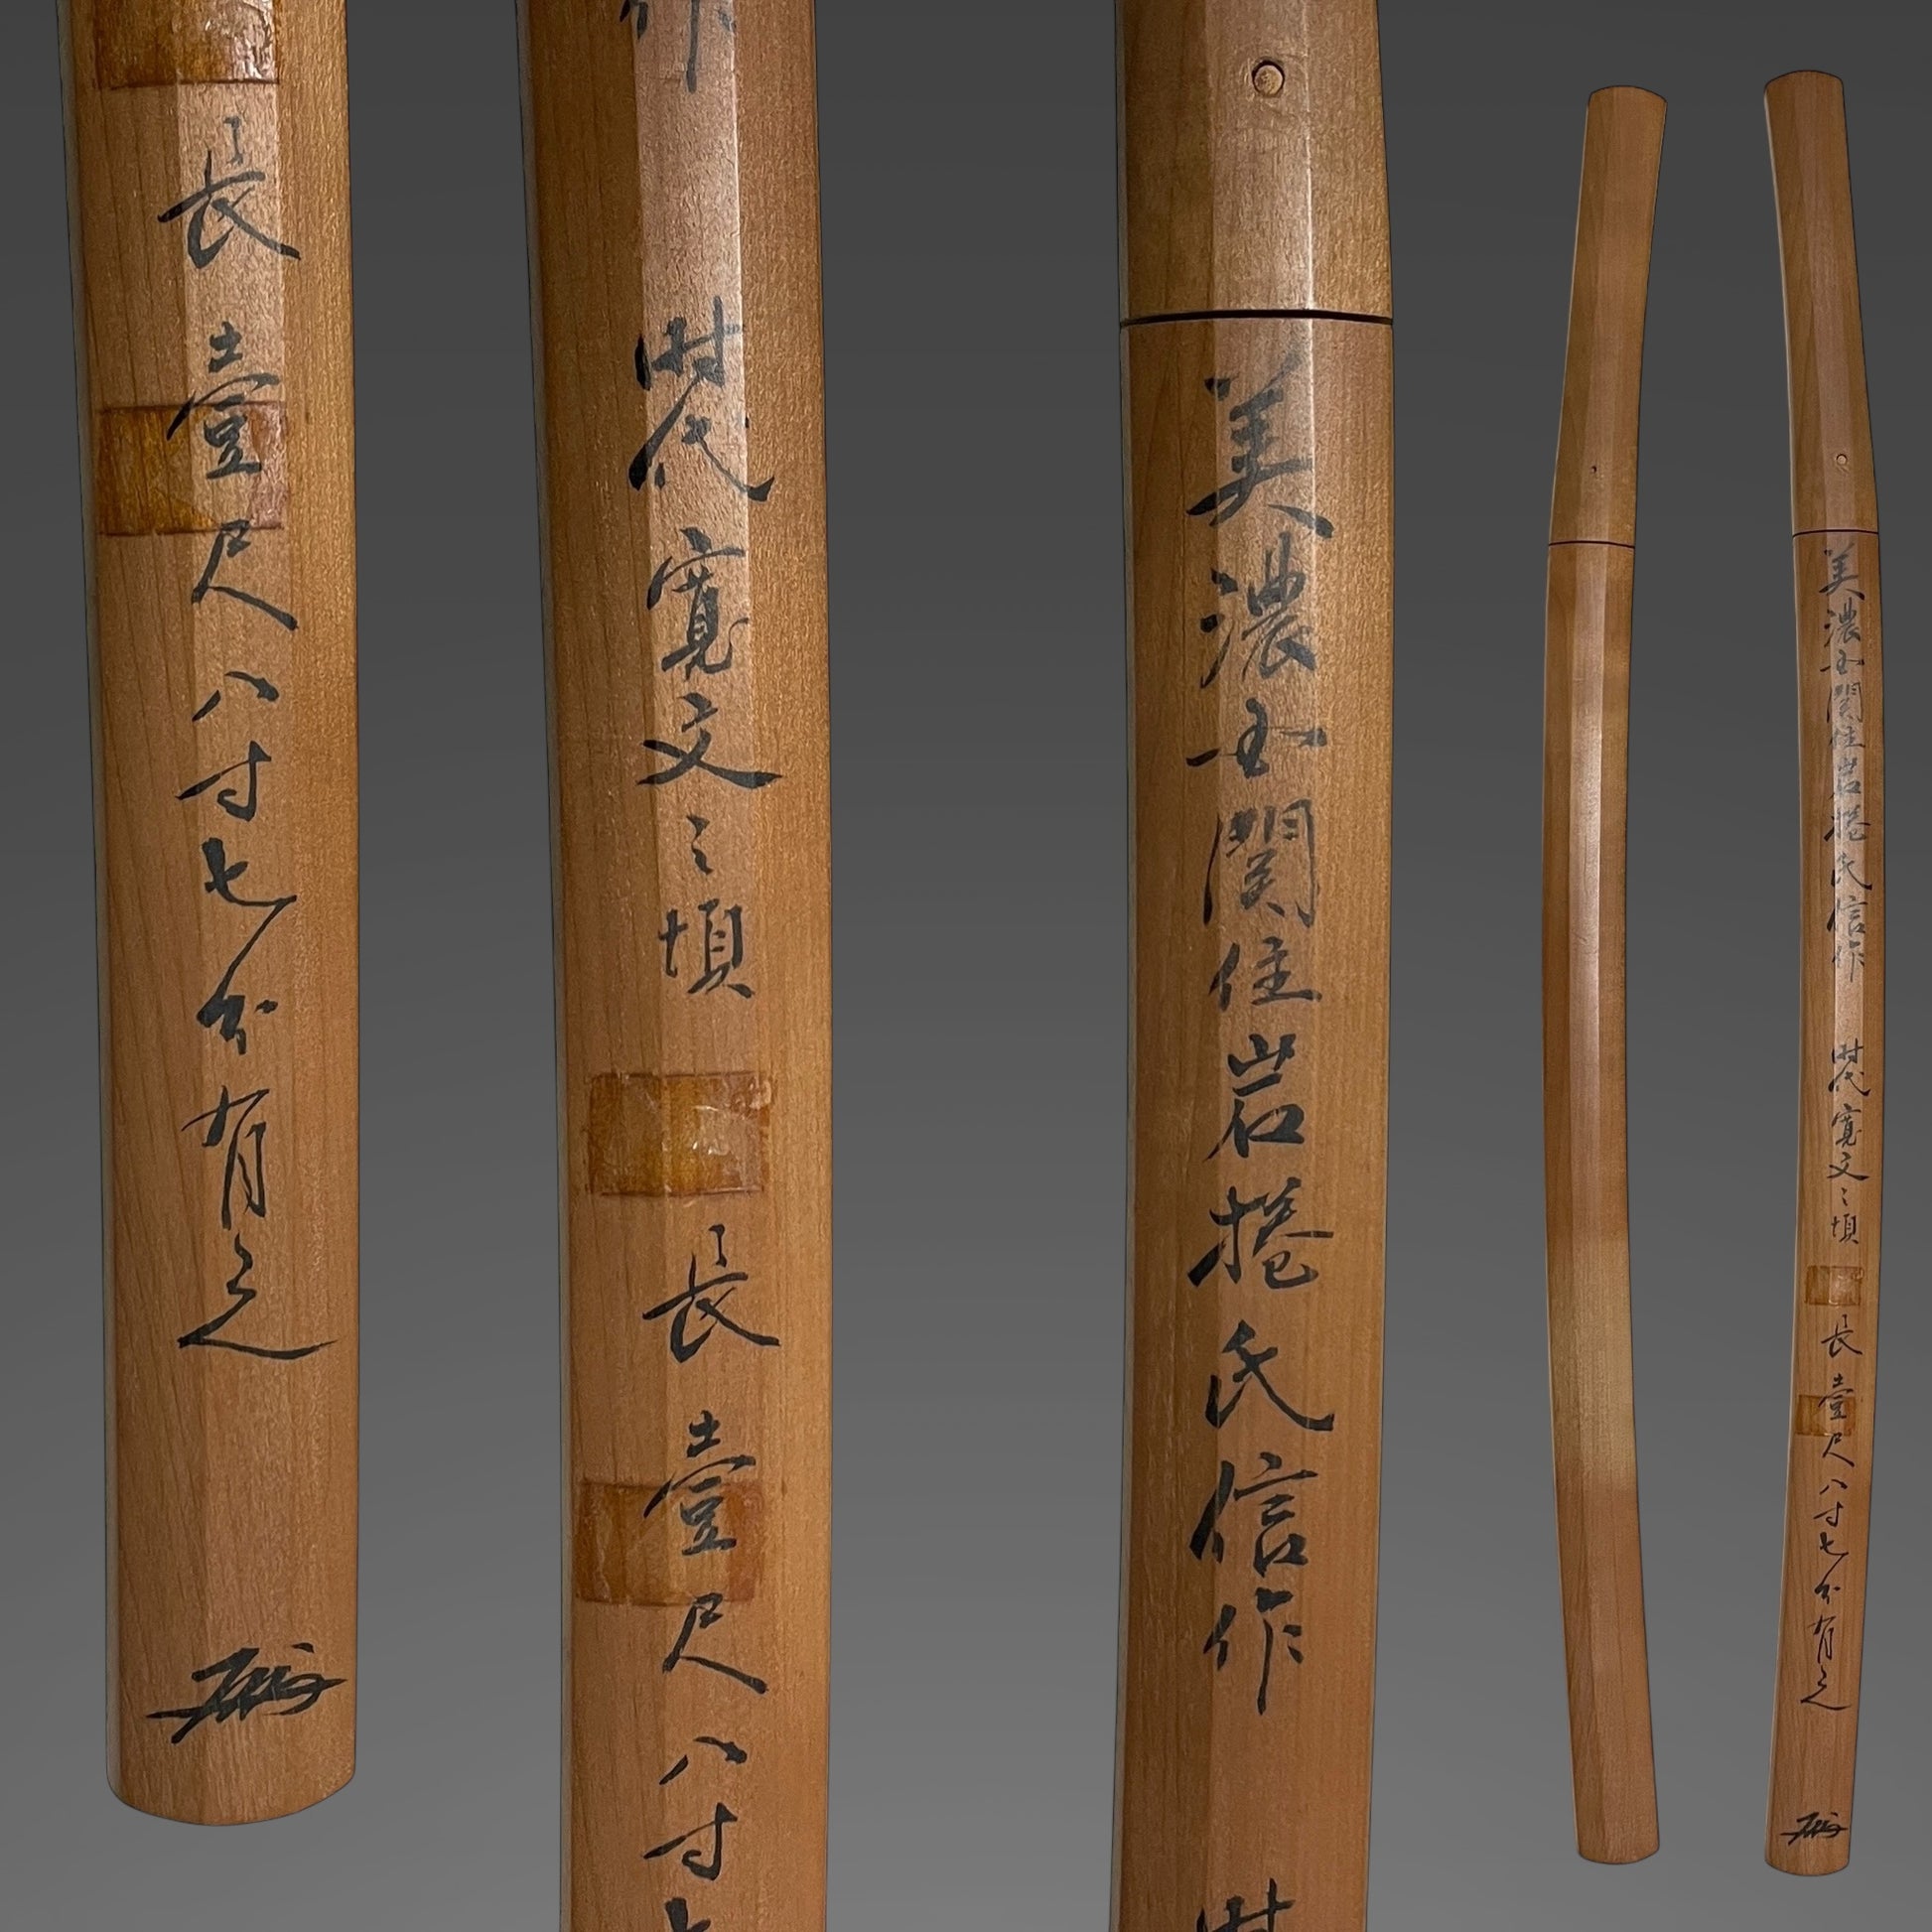 美濃国関住岩捲氏信作 時代寛文之頃 長壹尺八寸七分有之
美濃国関住岩捲氏信作 時
作 時代寛文之頃 長壹尺八寸七
長壹尺八寸七分有之